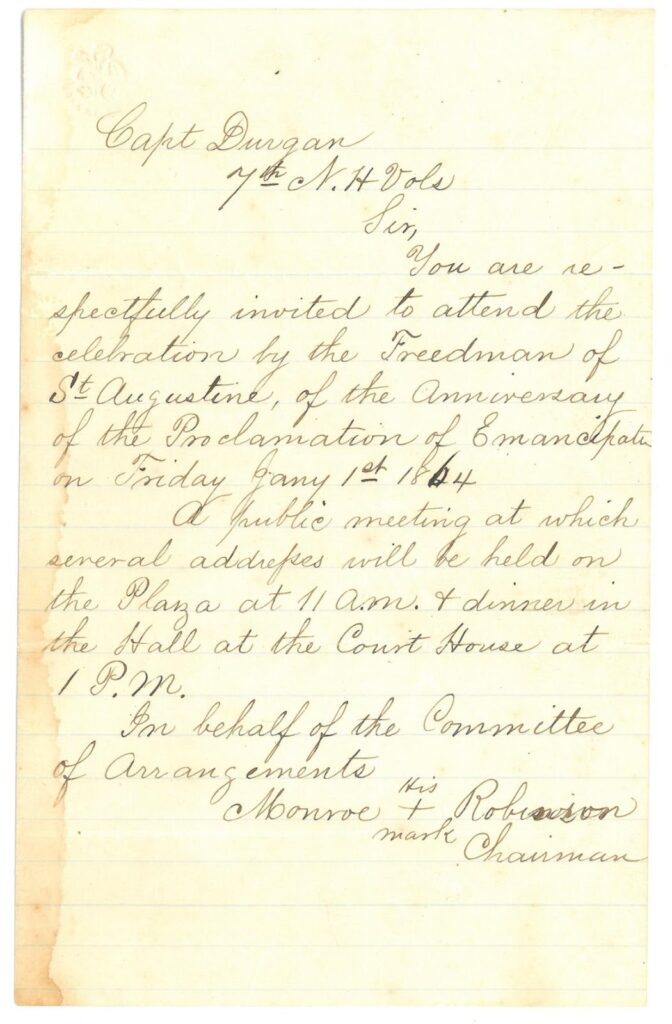 Capt Durgan
7th N. H Vols
Sir,
You are re-
spectfully invited to attend the
celebration by the Freedman of
St Augustine, of the Anniversary
of the Proclamation of Emancipatn
on Friday Jany 1st 1864
A public meeting at which
several addresses will be held on
the Plaza at 11 a.m. & dinner in
the Hall at the Court House at
1 P.M.
In behalf of the Committee
of Arrangements
His
Monroe + Robinson
mark
Chairman